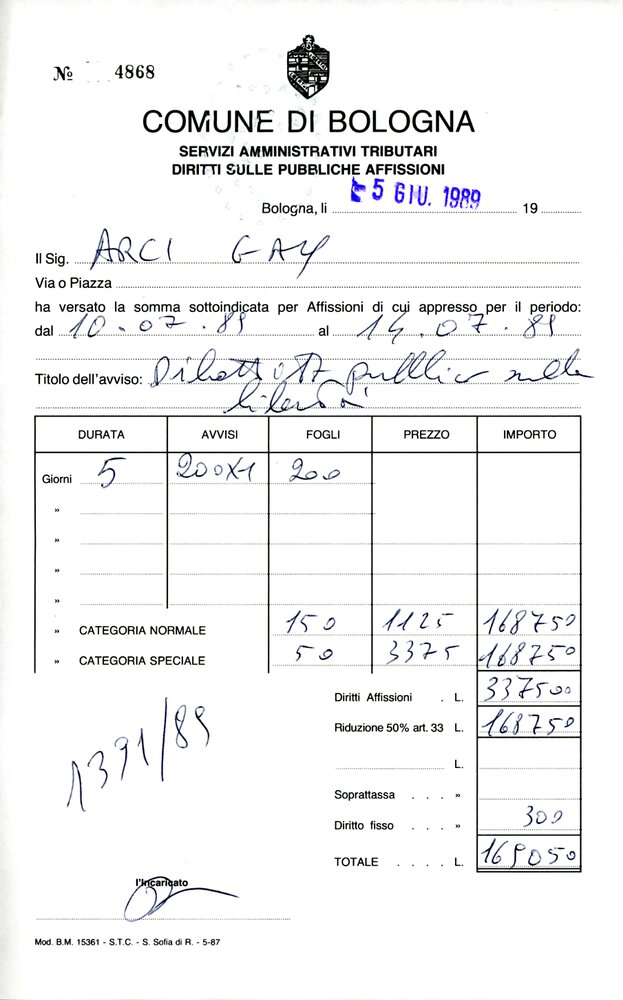 No 4868
COMUNE DI BOLOGNA
SERVIZI AMMINISTRATIVI TRIBUTARI
DIRITTI SULLE PUBBLICHE AFFISSIONI
Bologna, li - 5 GIU. 1989 19
Il Sig. ARCI GAY
Via o Piazza
ha versato la somma sottoindicata per Affissioni di cui appresso per il periodo:
dal 10.07.89 al 14.07.89
Titolo dell'avviso: pubblico sulla
DURATA AVVISI FOGLI PREZZO IMPORTO
Giorni 5 200x1 200
»
»
»
»
» CATEGORIA NORMALE 150 1125 168750
» CATEGORIA SPECIALE 50 3375 168750
Diritti Affissioni . L. 337500
Riduzione 50% art. 33 L. 168750
L.
Soprattassa . . . »
Diritto fisso . . . » 300
TOTALE . . . . L. 169050
1391/89
l'Incaricato
Mod. B.M. 15361 - S.T.C. - S. Sofia di R. - 5-87